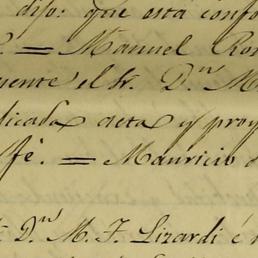 dijo: que está confo
= Manuel Ro
uente el Sr. Dn. M
dicada acta y proy
fé. = Mauricio
Dn. M. J. Lizardi é